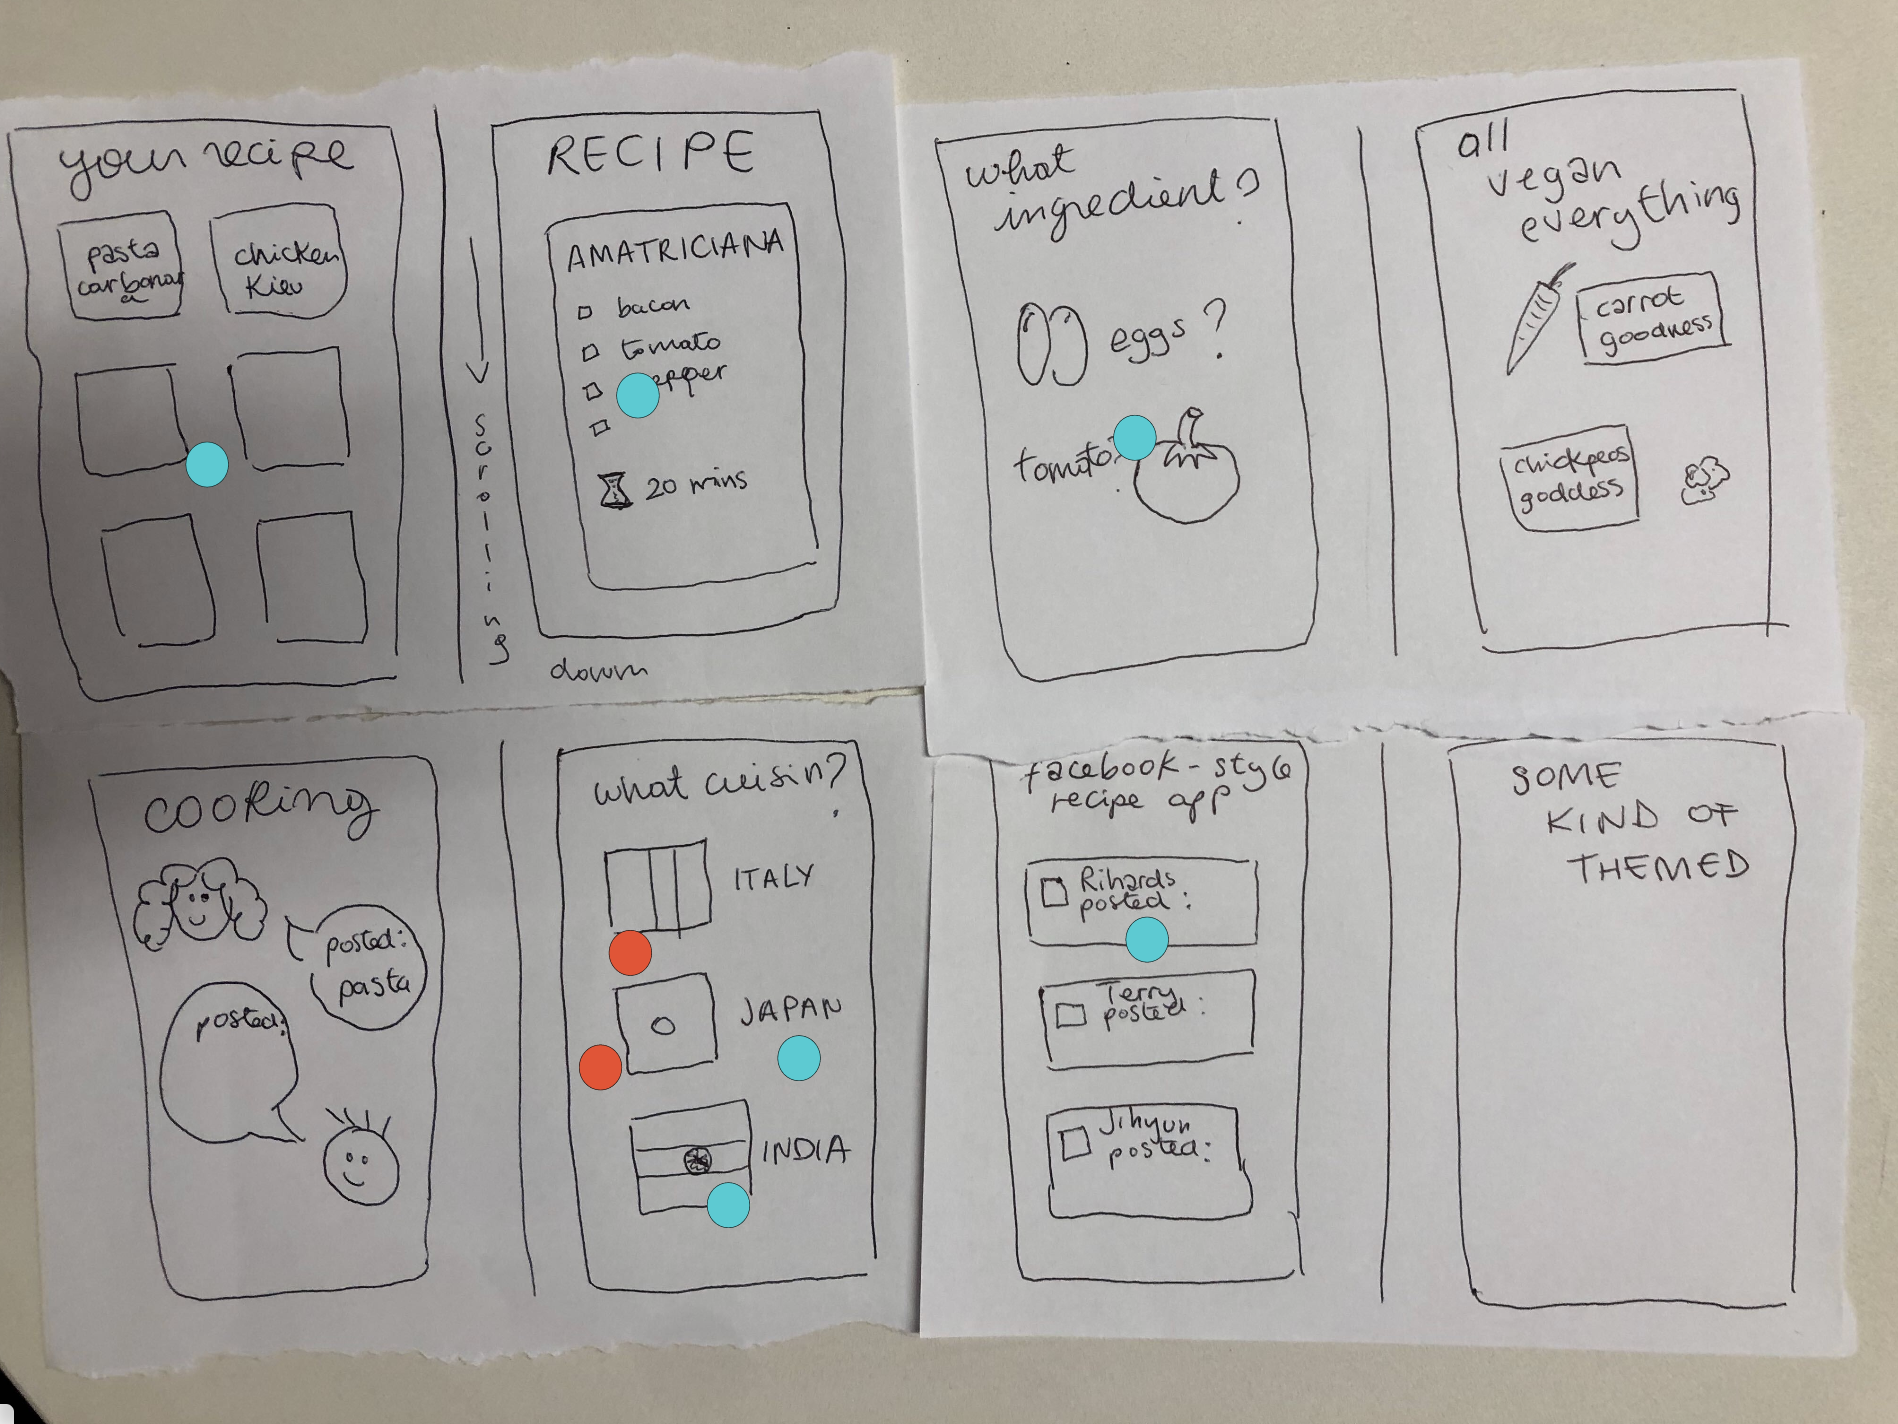 your recipe
pasta
carbonara
chicken
Kiev
scrolling
down
RECIPE
AMATRICIANA
bacon
tomato
20 mins
what
ingredient?
eggs?
tomato?
all
vegan
everything
carrot
goodness
chickpeas
goddess
COOKING
posted:
pasta
posted:
what cuisin?
ITALY
JAPAN
INDIA
facebook-style
recipe app
Rihards
posted:
Terry
posted:
Jihyun
posted:
SOME
KIND OF
THEMED